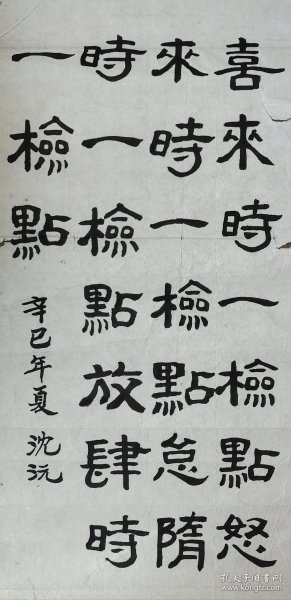 喜來時一檢點怒
來時一檢點怠隋
時一檢點放肆時
一檢點
辛巳年夏 沈沅
孔夫子旧书网